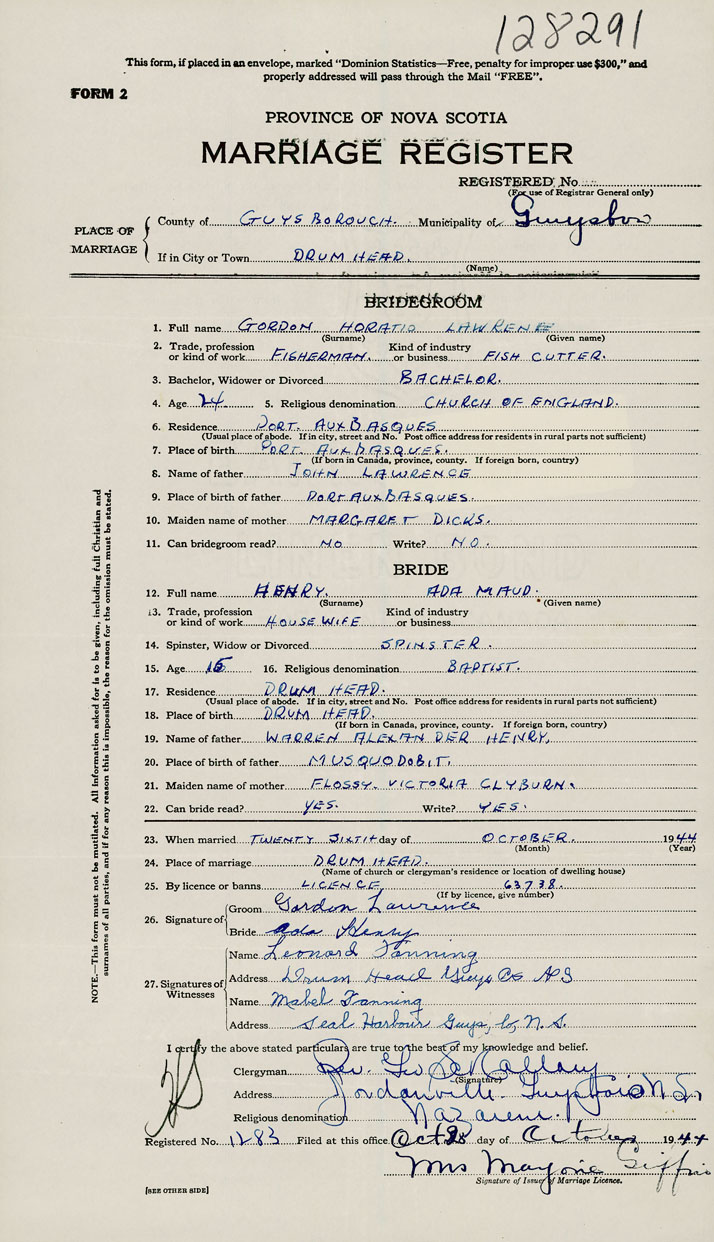 128291
This form, if placed in an envelope, marked "Dominion Statistics—Free, penalty for improper use $300," and
properly addressed will pass through the Mail "FREE".
FORM 2
PROVINCE OF NOVA SCOTIA
MARRIAGE REGISTER
REGISTERED No.
(For use of Registrar General only)
PLACE OF MARRIAGE
County of GUYSBOROUCH. Municipality of Guysboro
If in City or Town DRUM HEAD.
(Name)
BRIDEGROOM
1. Full name GORDON HORATIO LAWRENE
(Surname) (Given name)
2. Trade, profession or kind of work FISHERMAN. Kind of industry or business FISH CUTTER.
3. Bachelor, Widower or Divorced BACHELOR.
4. Age 24 5. Religious denomination CHURCH OF ENGLAND.
6. Residence PORT. AUX BASQUES
(Usual place of abode. If in city, street and No. Post office address for residents in rural parts not sufficient)
7. Place of birth PORT. AUX BASQUES.
(If born in Canada, province, county. If foreign born, country)
8. Name of father JOHN LAWRENCE
9. Place of birth of father PORT AUX BASQUES.
10. Maiden name of mother MARGARET DICKS.
11. Can bridegroom read? NO Write? NO.
BRIDE
12. Full name HENRY. ADA MAUD.
(Surname) (Given name)
13. Trade, profession or kind of work HOUSE WIFE Kind of industry or business
14. Spinster, Widow or Divorced SPINSTER.
15. Age 16 16. Religious denomination BAPTIST.
17. Residence DRUM HEAD.
(Usual place of abode. If in city, street and No. Post office address for residents in rural parts not sufficient)
18. Place of birth DRUM HEAD.
(If born in Canada, province, county. If foreign born, country)
19. Name of father WARREN ALEXANDER HENRY,
20. Place of birth of father MUSQUODOBIT.
21. Maiden name of mother FLOSSY. VICTORIA CLYBURN.
22. Can bride read? YES. Write? YES.
23. When married TWENTY SIXTH day of OCTOBER. 1944
(Month) (Year)
24. Place of marriage DRUM HEAD.
(Name of church or clergyman's residence or location of dwelling house)
25. By licence or banns LICENCE 63738.
(If by licence, give number)
26. Signature of
Groom Gordon Lawrence
Bride Ada Henry
27. Signatures of Witnesses
Name Leonard Fanning
Address Drum Head Guys Co NS
Name Mabel Fanning
Address Seal Harbour Guys, Co, N.S.
I certify the above stated particulars are true to the best of my knowledge and belief.
Clergyman Rev. Geo
(Signature)
Address Jordanville Guysboro N.S.
Religious denomination Nazarene.
Registered No. 1283 Filed at this office Oct 28 day of October 1944
Mrs Marjorie Giffin
Signature of Issuer of Marriage Licence.
[SEE OTHER SIDE]
NOTE.—This form must not be mutilated. All information asked for is to be given, including full Christian and
surnames of all parties, and if for any reason this is impossible, the reason for the omission must be stated.